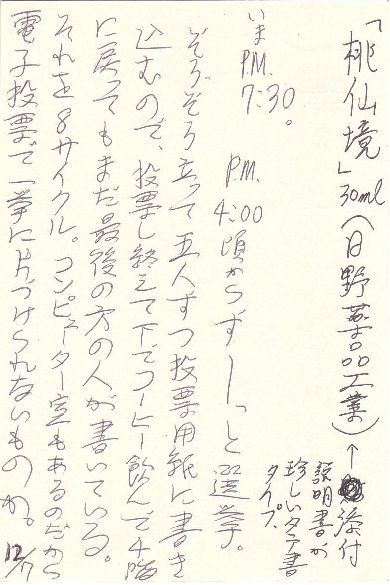 「桃仙境」30ml（日野薬品工業）↑添付
説明書が
珍しいタテ書
タイプ。
いま
P.M.
7:30。
P.M.
4:00
頃からずーっと選挙。
ぞろぞろ立って五人ずつ投票用紙に書き
込むので、投票し終えて下でコーヒー飲んで4階
に戻ってもまだ最後の方の人が書いている。
それを8サイクル。コンピューター室もあるのだから
電子投票で一挙に片づけられないものか。
12/7